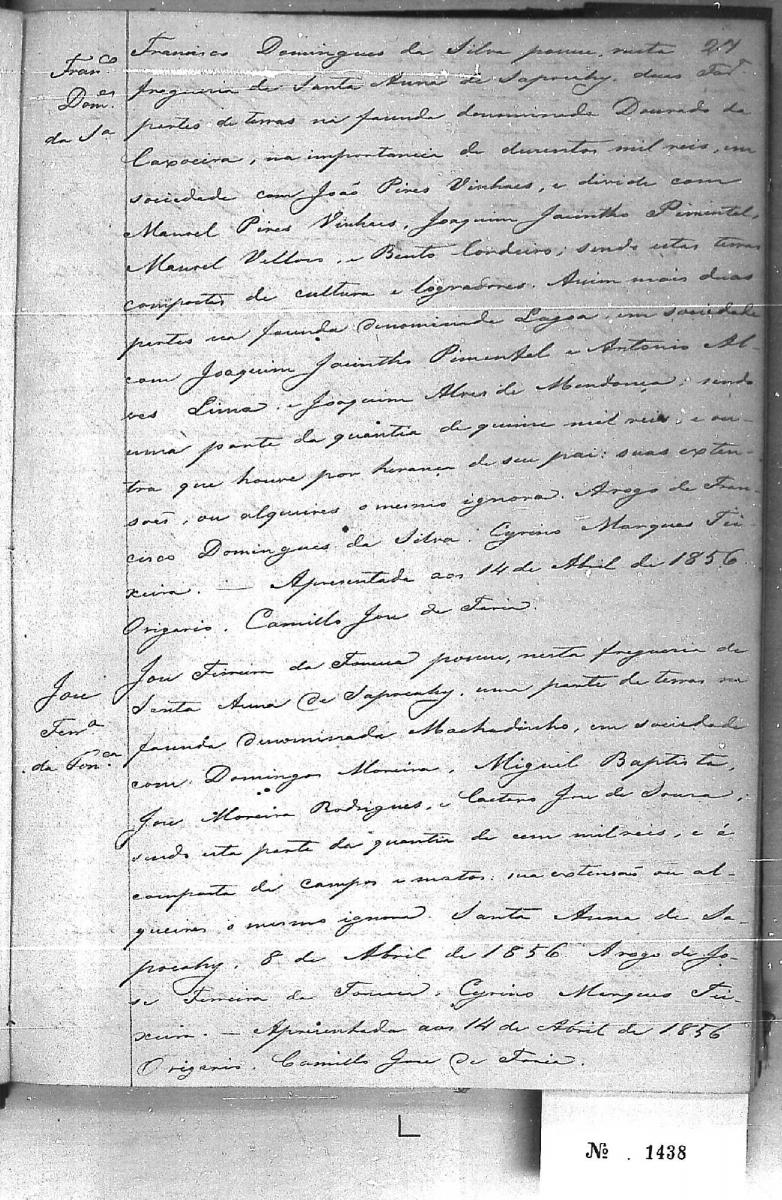 27
Fran.co
Dom.es
da S.a
Francisco Domingues da Silva possue, nesta
freguesia de Santa Anna de Sapocahy, duas
partes de terras na fasenda denominada Dourado da
Caxoeira, na importancia de dusentos mil reis, em
sociedade com João Pires Vinhaes, e divide com
Manoel Pires Vinhaes, Joaquim Jacintho Pimentel,
Manoel Velloso, e Bento Cordeiro; sendo estas terras
compostas de cultura e logradores. Assim mais duas
partes na fasenda denominada Lagoa, em sociedade
com Joaquim Jacintho Pimentel e Antonio Al-
ves Lima, e Joaquim Alves de Mendonça; sendo
uma parte da quantia de quinse mil reis, e ou-
tra que houve por herança de seu pai: suas exten-
soẽs, ou alqueires o mesmo ignora. Arogo de Fran-
cisco Domingues da Silva. Cyrino Marques Tei-
xeira. — Apresentada aos 14 de Abril de 1856
O vigario. Camillo Jose de Faria.
Jose
Ferr.a
da Fon.ca
Jose Ferreira da Fonseca possue, nesta freguesia de
Santa Anna de Sapocahy, uma parte de terras na
fasenda denominada Machadinho, em sociedade
com Domingos Moreira, Miguel Baptista,
Jose Moreira Rodrigues, e Caetano Jose de Sousa;
sendo esta parte da quantia de cem mil reis, e é
composta de campos e matos: sua extensão ou al-
queires o mesmo ignora. Santa Anna de Sa-
pocahy, 8 de Abril de 1856. Arogo de Jo-
se Ferreira da Fonseca, Cyrino Marques Tei-
xeira. — Apresentada aos 14 de Abril de 1856
O vigario. Camillo Jose de Faria.
№ . 1438